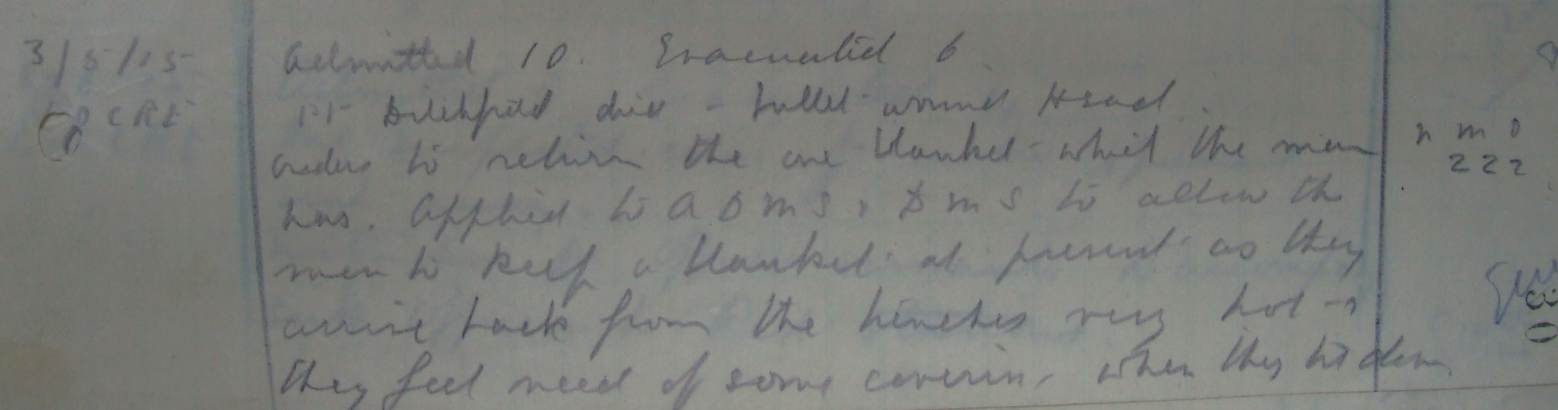 3/5/15 Admitted 10. Evacuated 6
Pt died - bullet wound Head.
orders to return the one blanket which the men
has. Applied to A D M S, D M S to allow the
men to keep a blanket at present as they
arrive back from the trenches very hot &
they feel need of some coverin, when they lie down
n m o
222